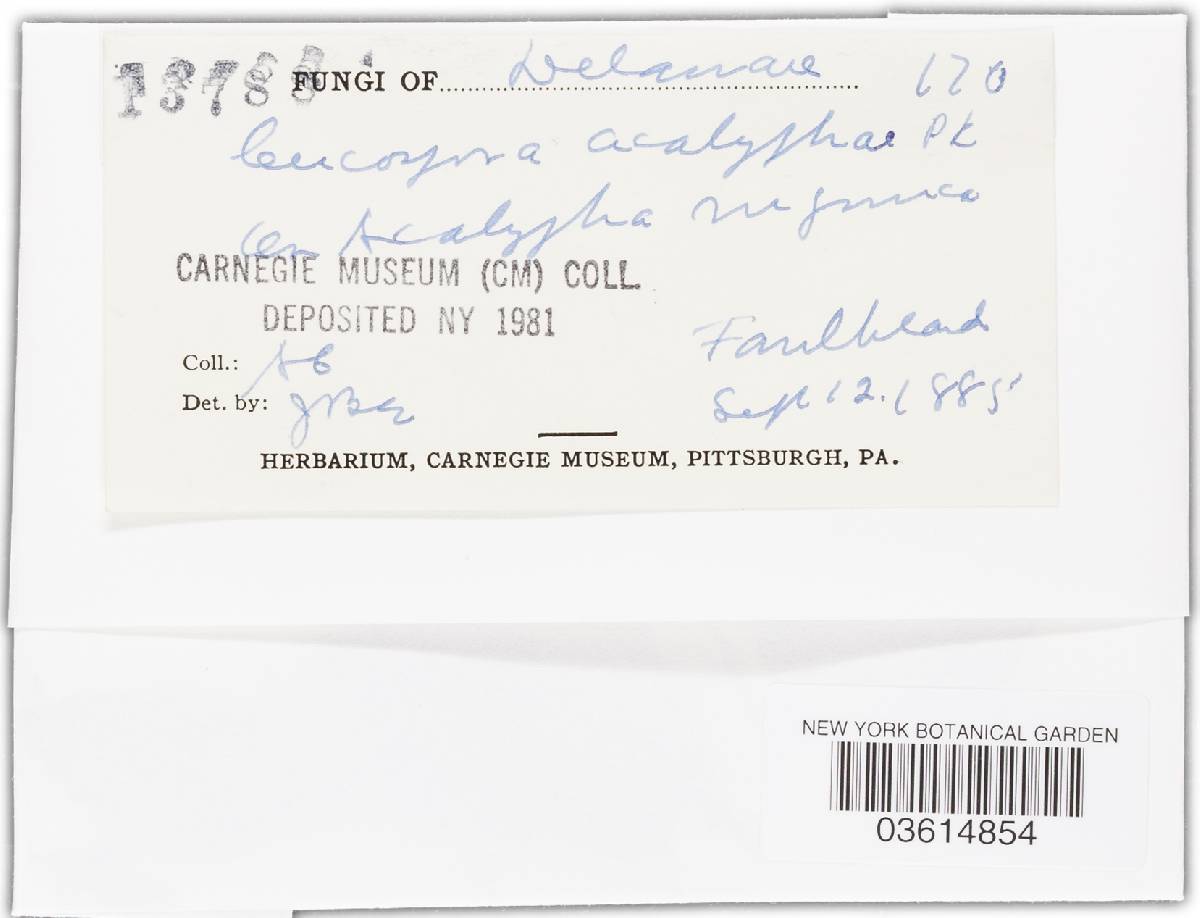 13788 FUNGI OF Delaware 170
Cercospora acalyphae Pk
on Acalypha virginica
CARNEGIE MUSEUM (CM) COLL.
DEPOSITED NY 1981
Faulkland
Coll.: AC
Det. by: JBE
Sept 12. 1885
HERBARIUM, CARNEGIE MUSEUM, PITTSBURGH, PA.
NEW YORK BOTANICAL GARDEN
03614854